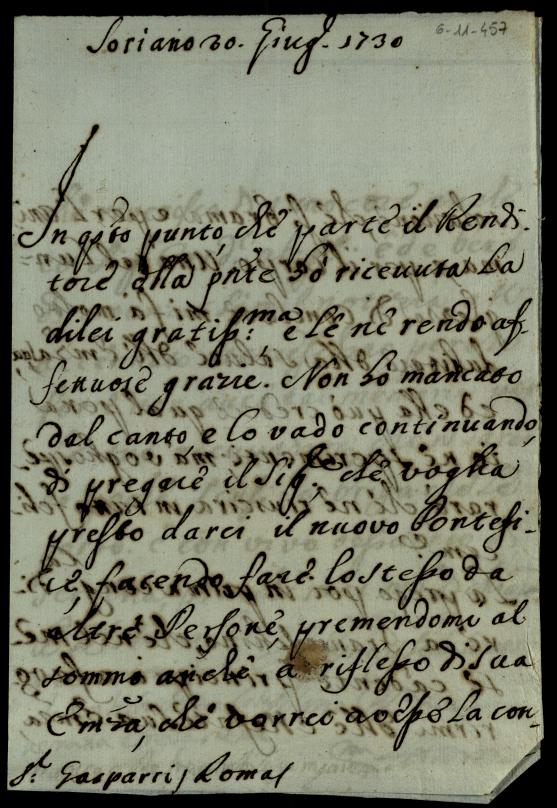 Soriano 20. Giug. 1730
6-11-457
In qsto punto, che parte il Rendi-
tore dlla pnte hò ricevuta la
dilei gratiss.ma, e le ne rendo af-
fettuose grazie. Non hò mancato
dal canto, e lo vado continuando,
di pregare il Sig.re che voglia
presto darci il nuovo Pontefi-
ce, facendo fare lo stesso da
altre Persone, premendomi al
sommo anche a riflesso di sua
Emza, che vorrei avesse la con-
S.r Gasparri, Roma